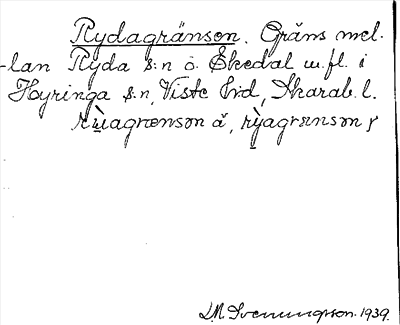 Rydagränsen. Gräns mel-
lan Ryda s:n o. Ekedal m.fl. i
Hyringa s:n, Viste hrd, Skarab. l.
rùagrænsən ä, rỳagrænsən y
D.M. Svenungsson. 1939.